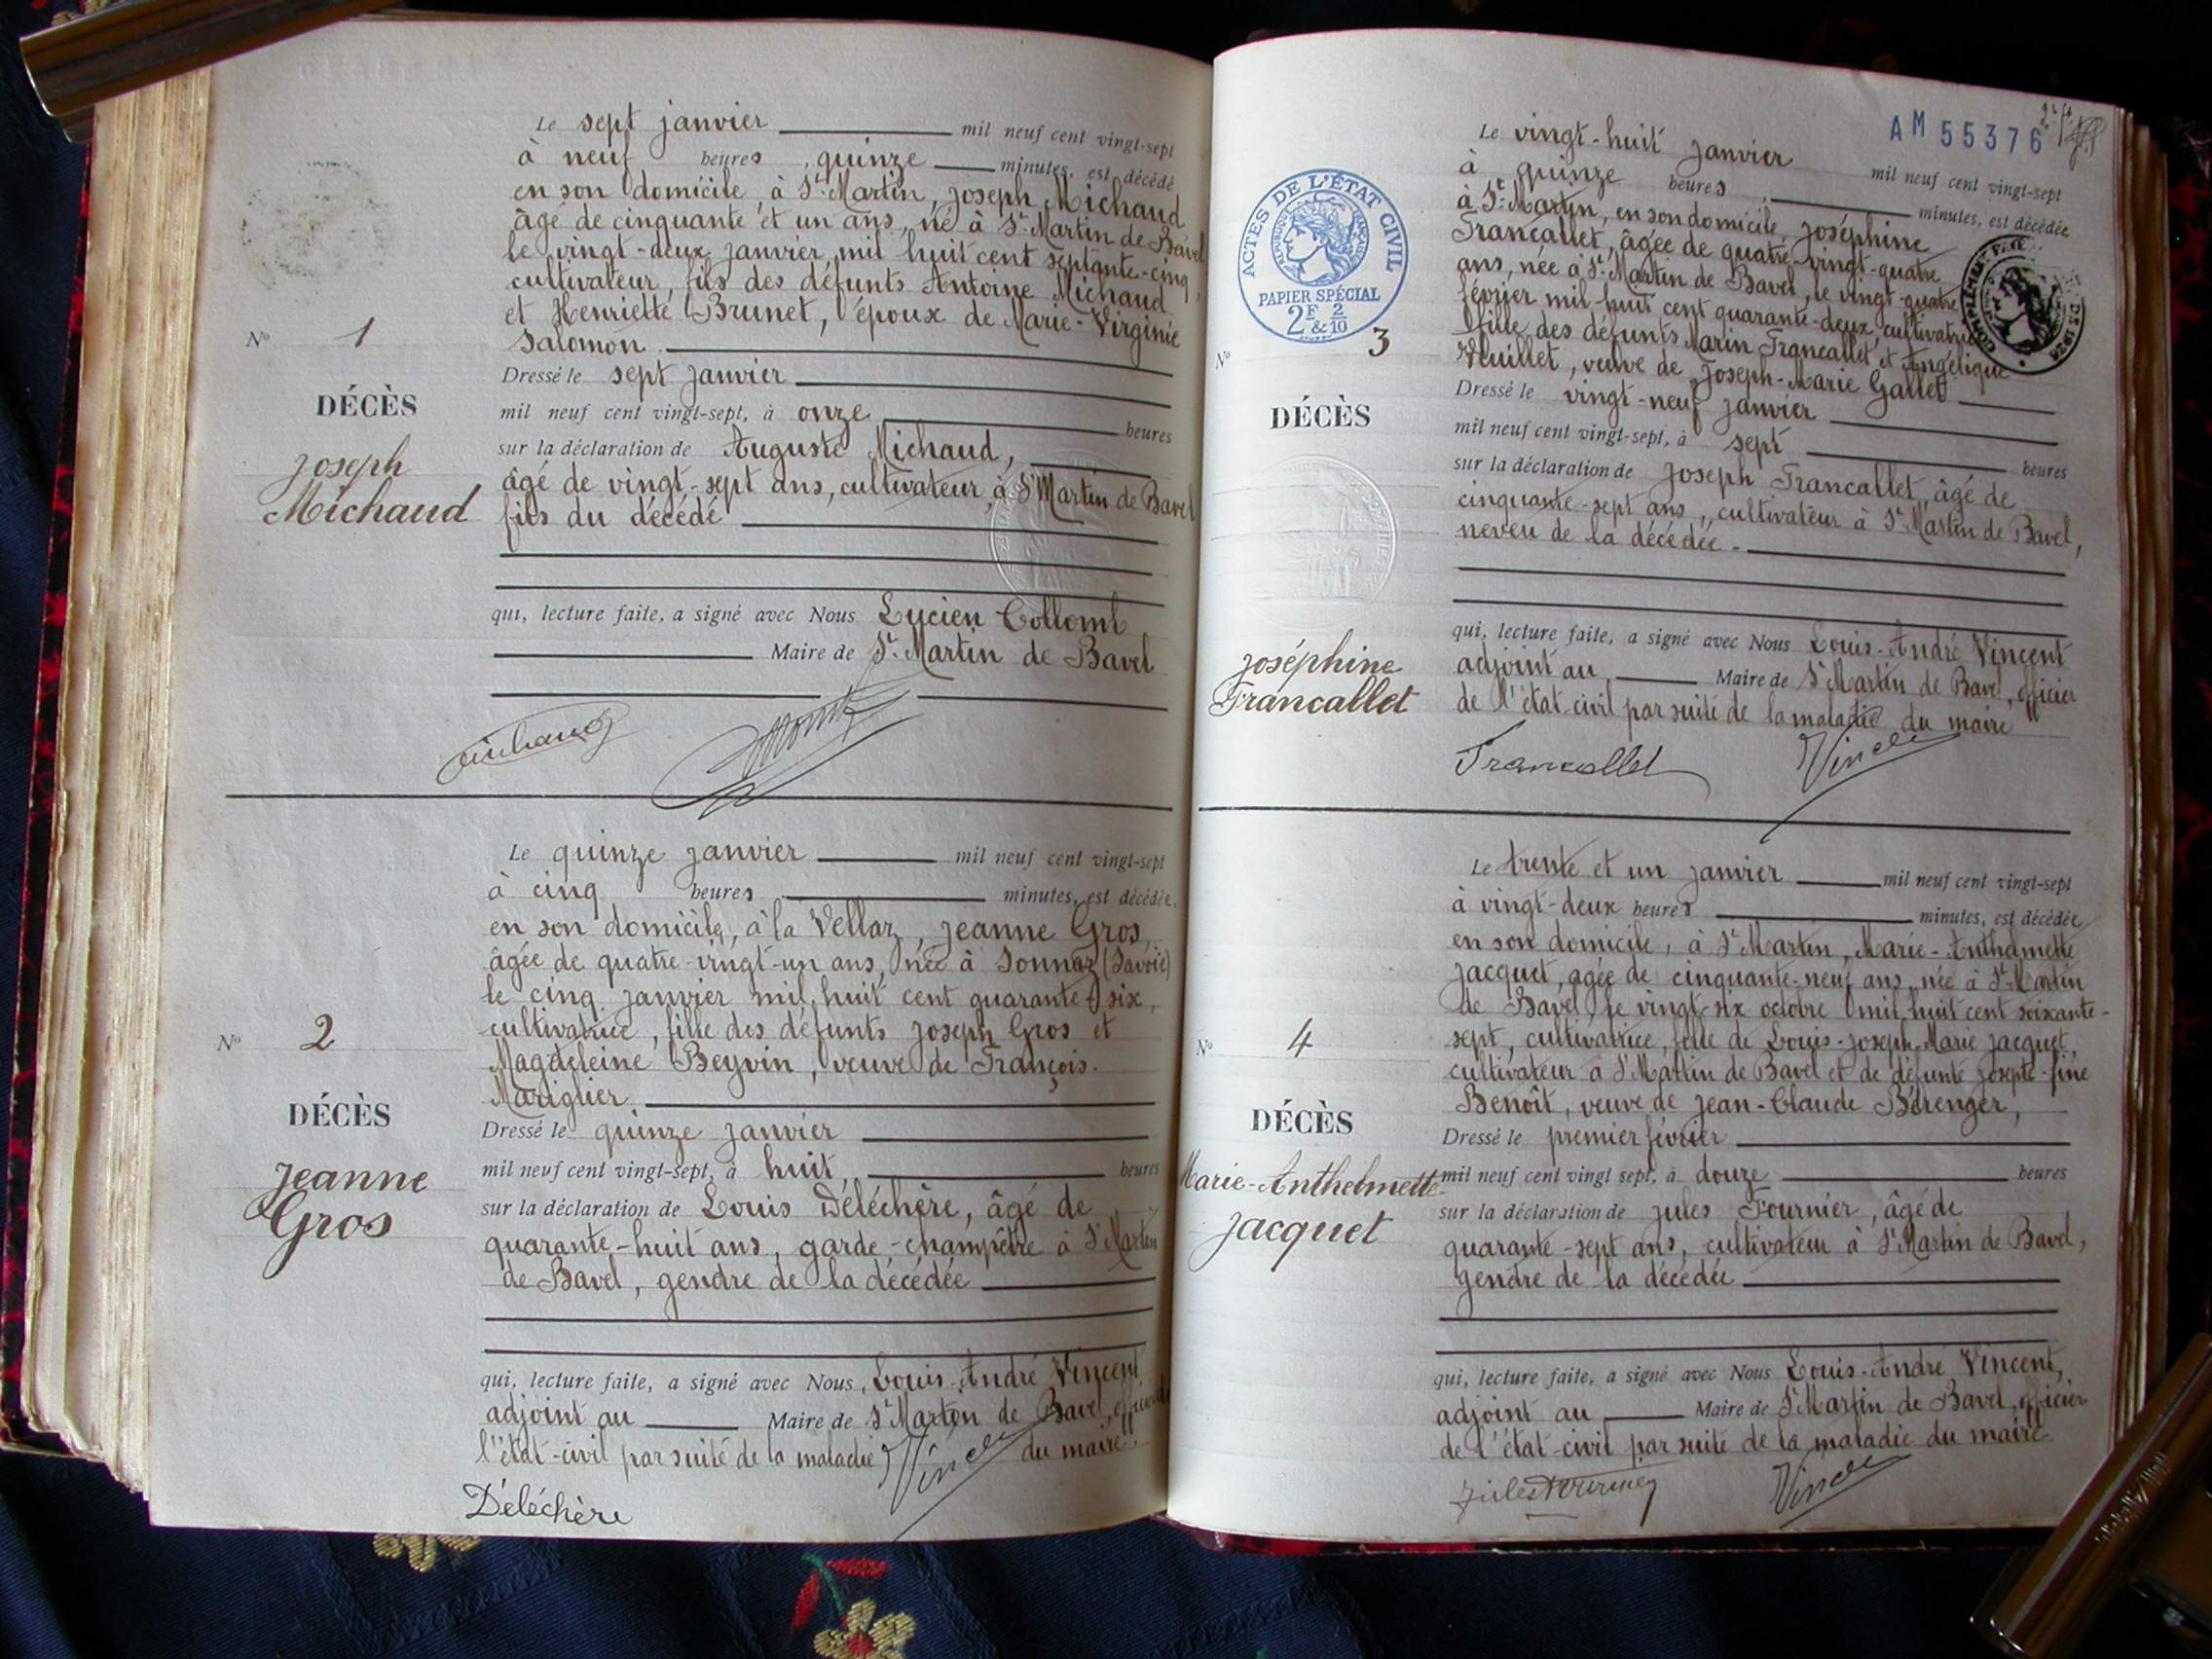 Le sept janvier mil neuf cent vingt-sept
à neuf heures, quinze minutes, est décédé
en son domicile, à St Martin, Joseph Michaud
âgé de cinquante et un ans, né à St Martin de Bavel
le vingt-deux janvier mil huit cent septante-cinq,
cultivateur, fils des défunts Antoine Michaud
et Henriette Brunet, époux de Marie-Virginie
Salomon
Nº 1
DÉCÈS
Joseph
Michaud
Dressé le sept janvier
mil neuf cent vingt-sept, à onze heures
sur la déclaration de Auguste Michaud,
âgé de vingt-sept ans, cultivateur, à St Martin de Bavel
fils du décédé
qui, lecture faite, a signé avec Nous Lucien Collomb
Maire de St Martin de Bavel
Le quinze janvier mil neuf cent vingt-sept
à cinq heures minutes, est décédée
en son domicile, à la Vellaz, Jeanne Gros,
âgée de quatre-vingt-un ans, née à Sonnaz (Savoie)
le cinq janvier mil huit cent quarante-six,
cultivatrice, fille des défunts Joseph Gros et
Magdeleine Beyvin, veuve de François
Mariglier
Nº 2
DÉCÈS
Jeanne
Gros
Dressé le quinze janvier
mil neuf cent vingt-sept, à huit heures
sur la déclaration de Louis Déléchère, âgé de
quarante-huit ans, garde-champêtre à St Martin
de Bavel, gendre de la décédée
qui, lecture faite, a signé avec Nous, Louis-André Vincent
adjoint au Maire de St Martin de Bavel, officier de
l'état-civil par suite de la maladie du maire.
Vincent
Déléchère
AM 55376
Le vingt-huit janvier mil neuf cent vingt-sept
à quinze heures minutes, est décédée
à St Martin, en son domicile, Joséphine
Francallet, âgée de quatre-vingt-quatre
ans, née à St Martin de Bavel, le vingt-quatre
février mil huit cent quarante-deux, cultivatrice
fille des défunts Marin Francallet et Angélique
Vuillet, veuve de Joseph-Marie Gallet
ACTES DE L'ÉTAT CIVIL
PAPIER SPÉCIAL
2F & 2/10
Nº 3
DÉCÈS
Joséphine
Francallet
Dressé le vingt-neuf janvier
mil neuf cent vingt-sept, à sept heures
sur la déclaration de Joseph Francallet, âgé de
cinquante-sept ans, cultivateur à St Martin de Bavel,
neveu de la décédée
qui, lecture faite, a signé avec Nous Louis-André Vincent
adjoint au Maire de St Martin de Bavel, officier
de l'état-civil par suite de la maladie du maire
Francallet Vincent
Le trente et un janvier mil neuf cent vingt-sept
à vingt-deux heures minutes, est décédée
en son domicile, à St Martin, Marie-Anthelmette
Jacquet, âgée de cinquante-neuf ans, née à St Martin
de Bavel, le vingt-six octobre mil huit cent soixante-
sept, cultivatrice, fille de Louis-Joseph-Marie Jacquet,
cultivateur à St Martin de Bavel et de défunte Josephte-fine
Benoît, veuve de Jean-Claude Bérenger,
Nº 4
DÉCÈS
Marie-Anthelmette
Jacquet
Dressé le premier février
mil neuf cent vingt sept, à douze heures
sur la déclaration de Jules Fournier, âgé de
quarante-sept ans, cultivateur à St Martin de Bavel,
gendre de la décédée
qui, lecture faite, a signé avec Nous Louis-André Vincent,
adjoint au Maire de St Martin de Bavel, officier
de l'état-civil par suite de la maladie du maire
Jules Fournier Vincent